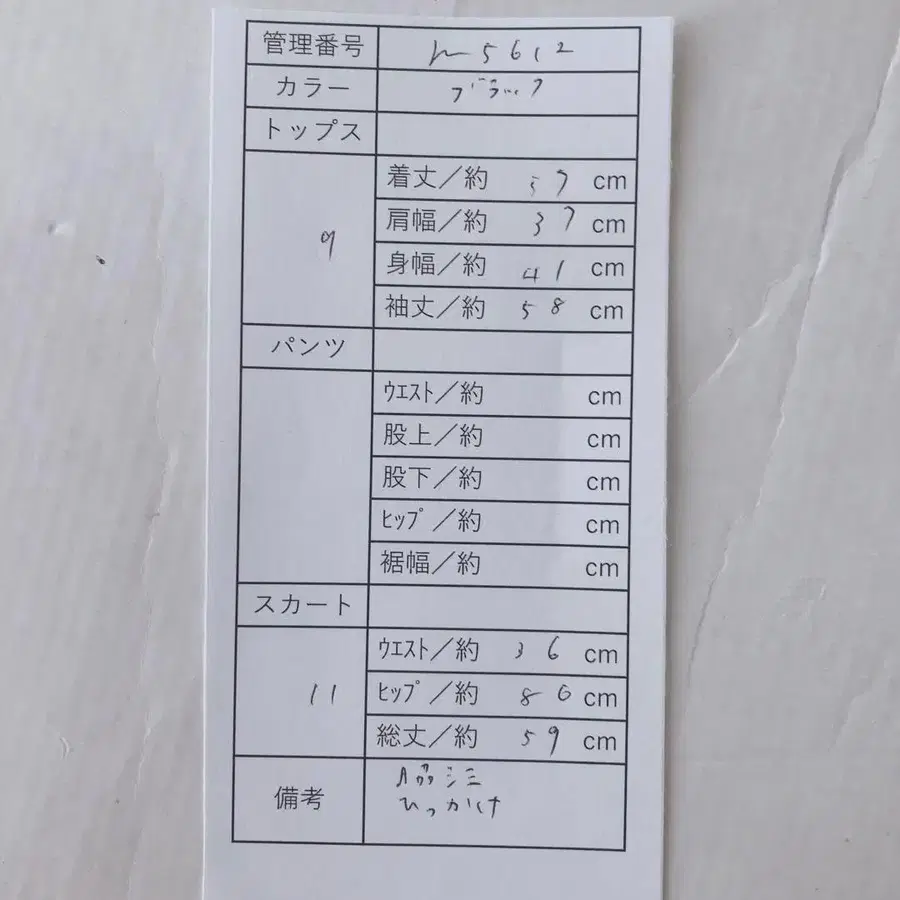 管理番号 m5612
カラー ブラック
トップス
9
着丈／約 57 cm
肩幅／約 37 cm
身幅／約 41 cm
袖丈／約 58 cm
パンツ
ｳｴｽﾄ／約 cm
股上／約 cm
股下／約 cm
ﾋｯﾌﾟ／約 cm
裾幅／約 cm
スカート
11
ｳｴｽﾄ／約 36 cm
ﾋｯﾌﾟ／約 80 cm
総丈／約 59 cm
備考 脇シミ
ひっかけ